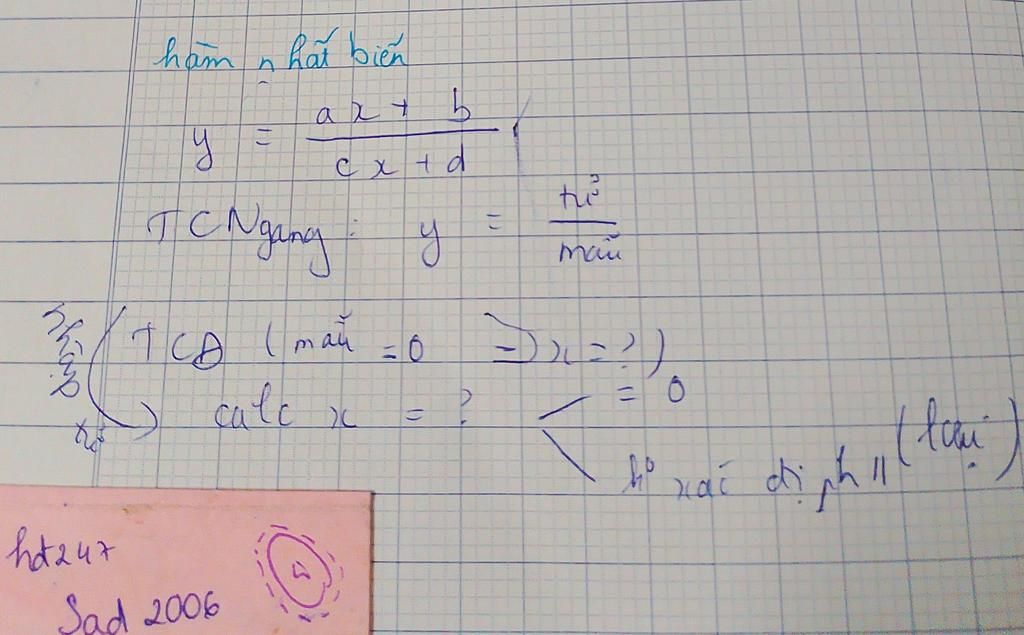 hàm nhất biến
y = ax + b / cx + d
TCNgang : y = tử / mẫu
TCĐ ( mẫu = 0 => x = ? )
calc x = ? = 0
k° xác định (loại)
tử
hd247
Sad 2006